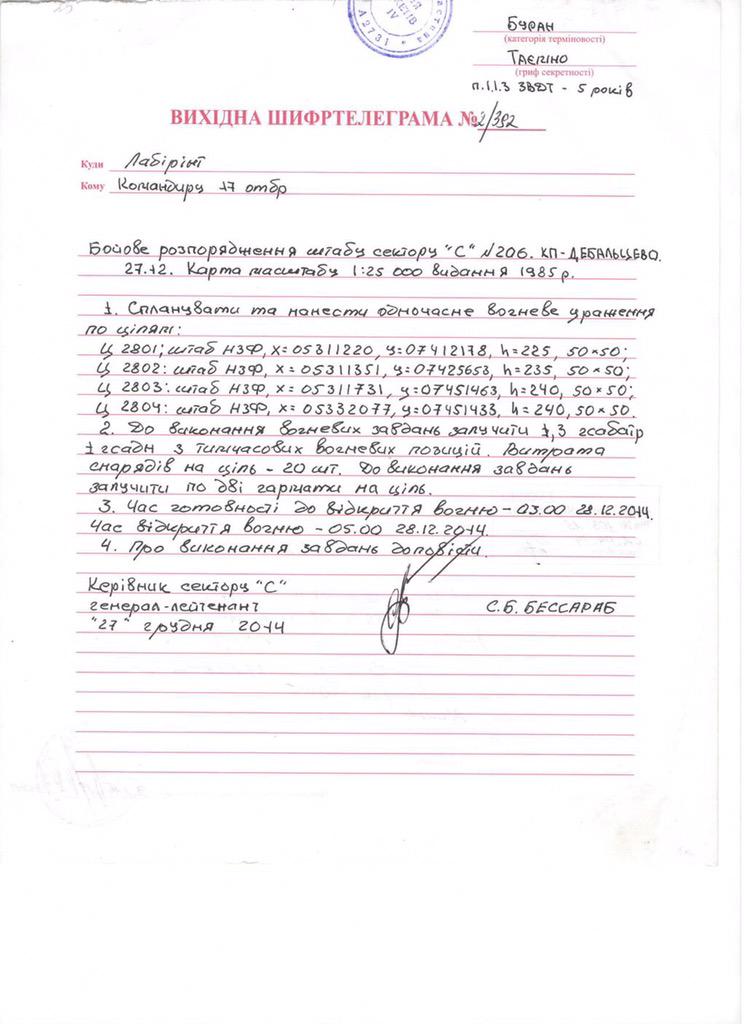 А2731
IV
Буран
(категорія терміновості)
Таємно
(гриф секретності)
п.1.1.3 ЗВДТ - 5 років
ВИХІДНА ШИФРТЕЛЕГРАМА № 2/392
Куди Лабірінт
Кому Командиру 17 отбр
Бойове розпорядження штабу сектору "С" №206. КП-ДЕБАЛЬЦЕВО.
27.12. Карта масштабу 1:25 000 видання 1985 р.
1. Спланувати та нанести одночасне вогневе ураження
по цілям:
Ц 2801; штаб НЗФ, х=05311220, у=07412178, h=225, 50×50;
Ц 2802: штаб НЗФ, х=05311351, у=07425653, h=235, 50×50;
Ц 2803: штаб НЗФ, х=05311731, у=07451463, h=240, 50×50;
Ц 2804: штаб НЗФ, х=05332077, у=07451433, h=240, 50×50.
2. До виконання вогневих завдань залучити 1,3 гсабатр
1 гсадн з тимчасових вогневих позицій. Витрата
снарядів на ціль - 20 шт. До виконання завдань
залучити по дві гармати на ціль.
3. Час готовності до відкриття вогню - 03.00 28.12.2014.
Час відкриття вогню - 05.00 28.12.2014.
4. Про виконання завдань доповісти.
Керівник сектору "С"
генерал-лейтенант С.Б. БЕССАРАБ
"27" грудня 2014